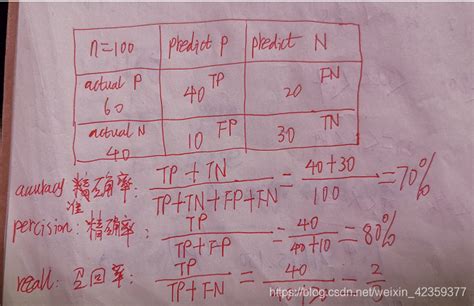 n=100 predict P predict N
actual P 60 40 TP 20 FN
actual N 40 10 FP 30 TN
accuracy 精确率: TP + TN / TP+TN+FP+FN = 40+30 / 100 = 70%
准
percision: 精确率: TP / TP+FP = 40 / 40+10 = 80%
recall: 召回率: TP / TP+FN = 40 / = 2 /
https://blog.csdn.net/weixin_42359377